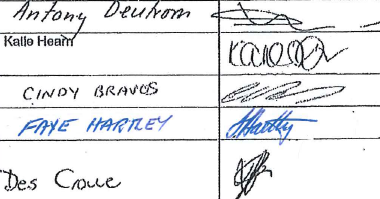 Antony Deutrom
Katie Hearn
CINDY BRAVOS
FAYE HARTLEY
Des Crowe